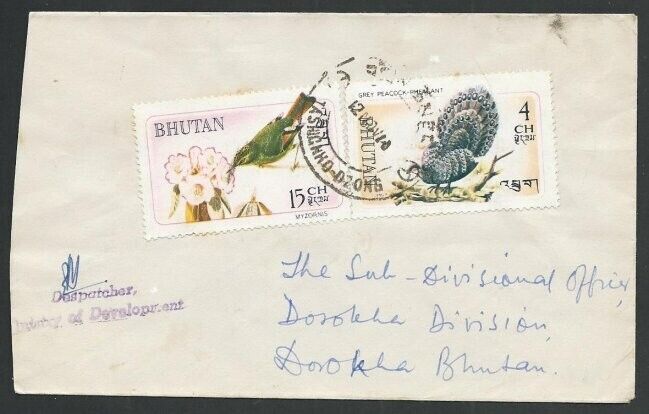 BHUTAN
15 CH
MYZORNIS
GREY PEACOCK-PHEASANT
4
CH
BHUTAN
འབྲུག
TASHICHHO-DZONG
Despatcher,
of Development
The Sub-Divisional Officer,
Dorokha Division,
Dorokha Bhutan.